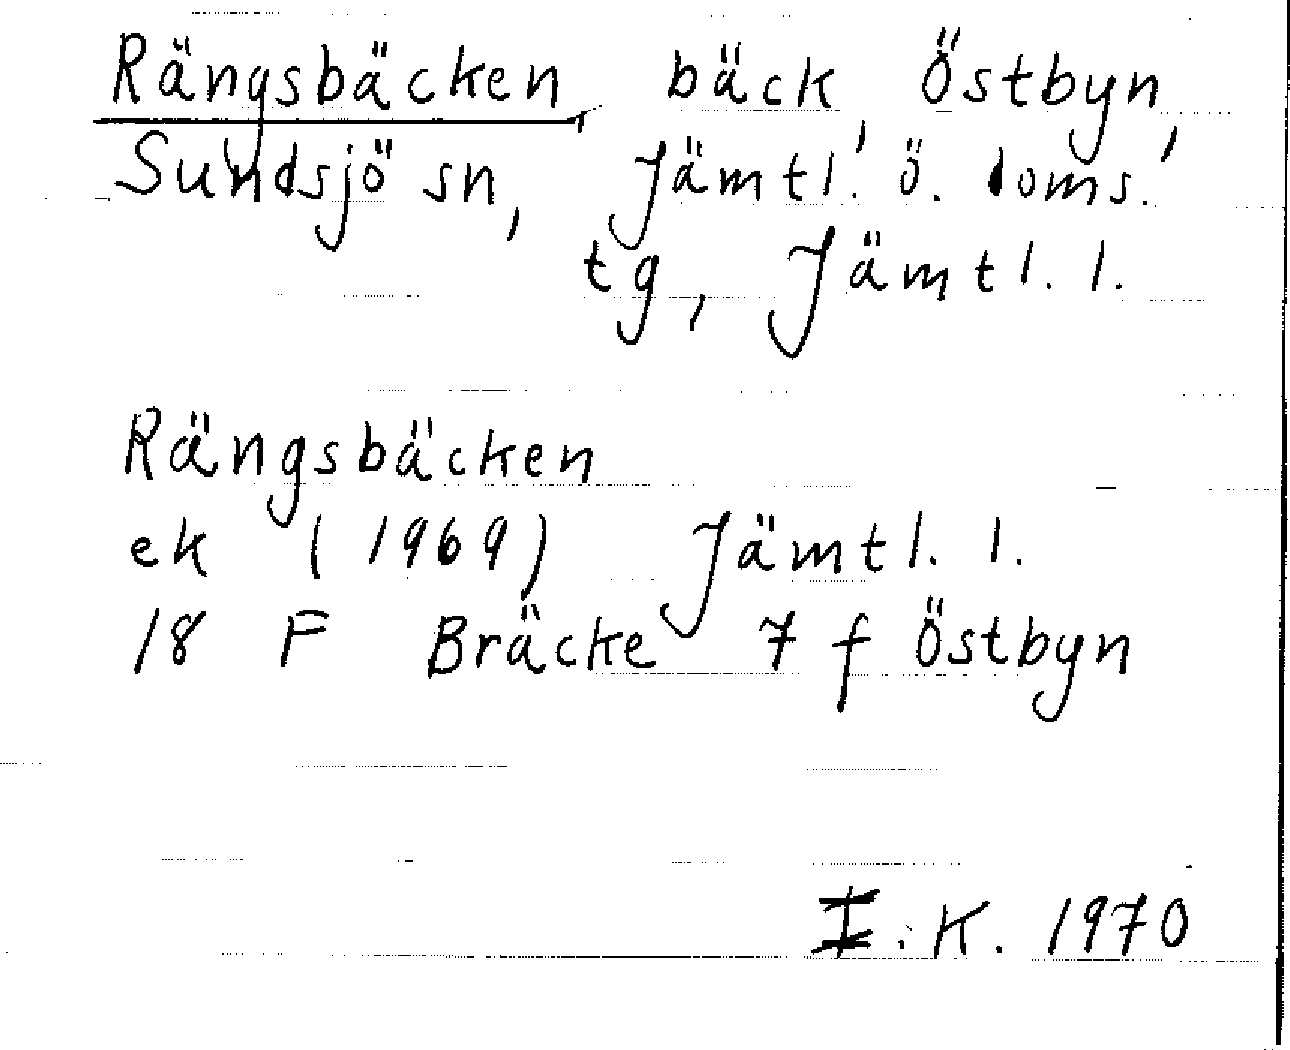 Rängsbäcken, bäck, Östbyn,
Sundsjö sn, Jämtl. ö. doms.
tg, Jämtl. l.
Rängsbäcken
ek (1969) Jämtl. l.
18 F Bräcke 7 f Östbyn
I.K. 1970